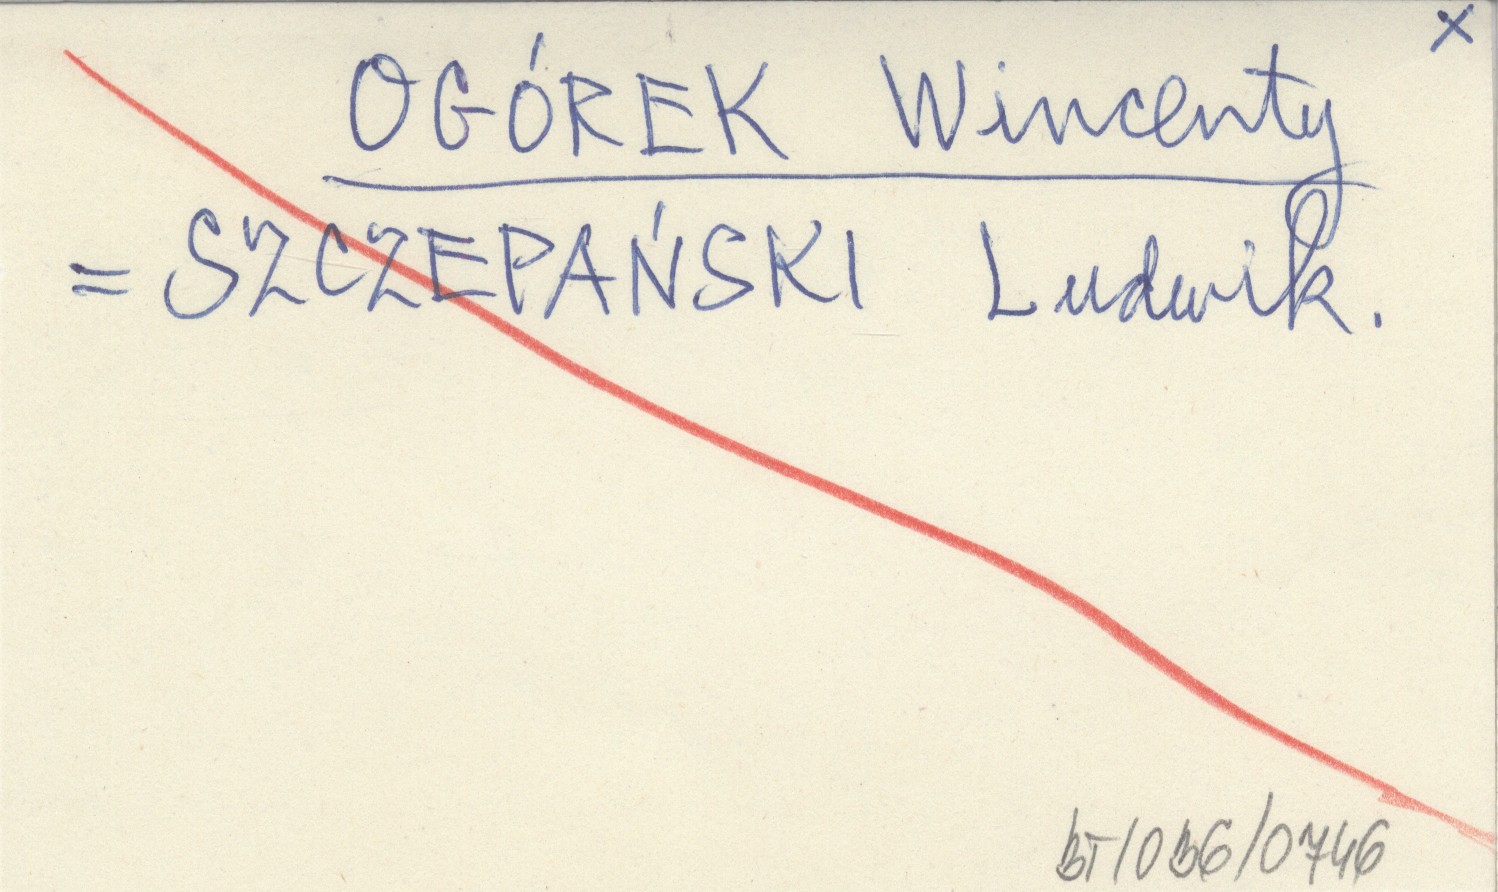 x
OGÓREK Wincenty
= SZCZEPAŃSKI Ludwik.
BT/OB6/0746